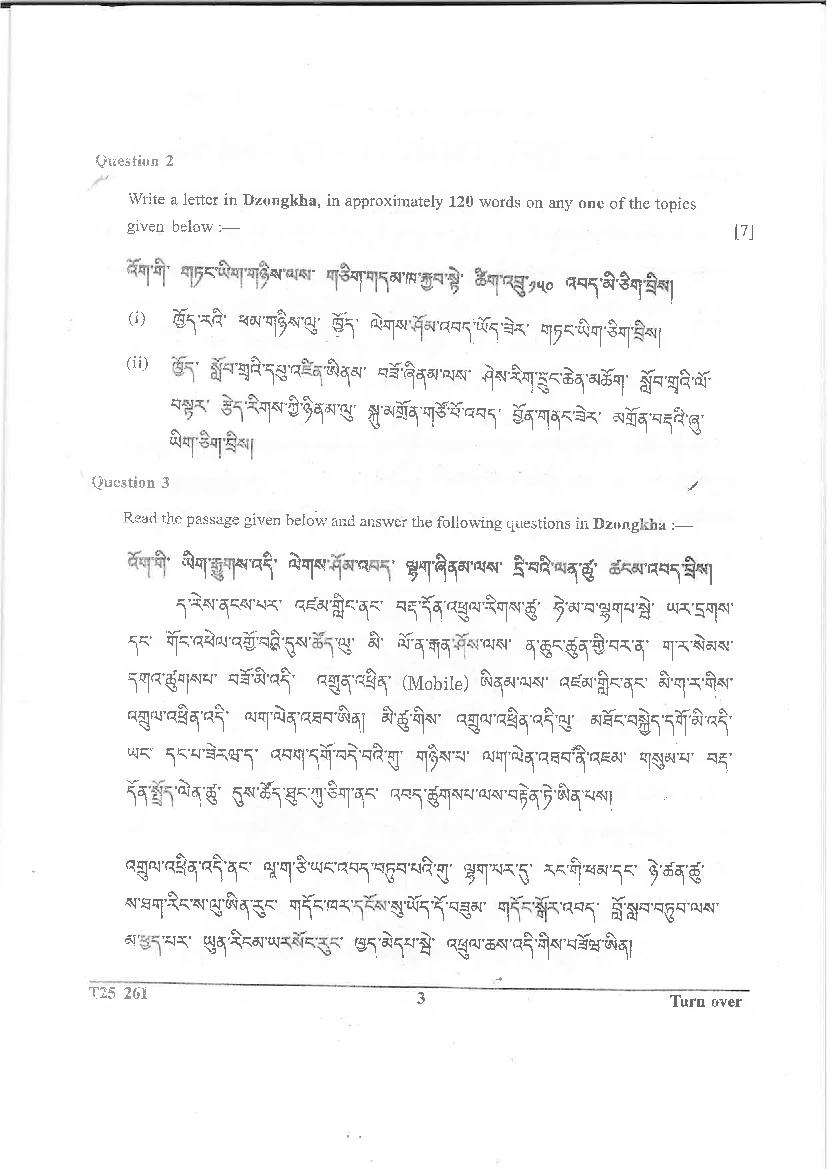 Question 2
Write a letter in Dzongkha, in approximately 120 words on any one of the topics
given below :— [7]
འོག་གི་ གཏང་ཡིག་གཉིས་ལས་ གཅིག་གདམ་ཁ་རྐྱབ་སྟེ་ ཚིག་འབྲུ་༡༥༠ འབད་མི་ཅིག་བྲིས།
(i) ཁྱོད་རའི་ ཕམ་གཉིས་ལུ་ ཁྱོད་ ལེགས་ཤོམ་འབད་ཡོད་ཟེར་ གཏང་ཡིག་ཅིག་བྲིས།
(ii) ཁྱོད་ སློབ་གྲྭའི་དཔུ་འཛིན་ཨིནམ་ བཟོ་ཞིནམ་ལས་ ཤེས་རིག་དྲུང་ཆེན་མཆོག་ སློབ་གྲྭའི་ལོ་
བསྟར་ རྩེད་རིགས་ཀྱི་ཉིནམ་ལུ་ སྐུ་མགྲོན་གཙོ་བོ་འབད་ བྱོན་གནང་ཟེར་ མགྲོན་བརྡའི་ཞུ་
ཡིག་ཅིག་བྲིས།
Question 3
Read the passage given below and answer the following questions in Dzongkha :—
འོག་གི་ ཡིག་རྒྱུགས་འདི་ ལེགས་ཤོམ་འབད་ ལྷག་ཞིནམ་ལས་ དྲི་བའི་ལན་ཚུ་ ཚངམ་འབད་བྲིས།
ད་རེས་ནངས་པར་ འཛམ་གླིང་ནང་ བརྡ་དོན་འཕྲུལ་རིགས་ཚུ་ ཧེ་མ་བ་ལྷགཔ་སྦེ་ ཡར་དྲགས་
དང་ གོང་འཕེལ་འགྱོ་བའི་དུས་ཚོད་ལུ་ མི་ ལོ་ན་རྒན་ཤོས་ལས་ ན་ཆུང་ཚུན་གྱི་བར་ན་ ག་ར་སེམས་
དགའ་ཚུགསཔ་ བཟོ་མི་འདི་ འགྲུན་འཕྲིན་ (Mobile) ཨིནམ་ལས་ འཛམ་གླིང་ནང་ མི་ག་ར་གིས་
འགྲུལ་འཕྲིན་འདི་ ལག་ལེན་འཐབ་ཨིན། མི་ཚུ་གིས་ འགྲུལ་འཕྲིན་འདི་ལུ་ མཐོང་བསྐྱེད་དགོ་མི་འདི་
ཡང་ དང་པ་ཟེརཝ་ད་ འབག་དགོ་བདེ་བའི་གུ་ གཉིས་པ་ ལག་ལེན་འཐབ་ནི་འཇམ་ གསུམ་པ་ བརྡ་
དོན་སྤྲོད་ལེན་ཚུ་ དུས་ཚོད་ཐུང་ཀུ་ཅིག་ནང་ འབད་ཚུགསཔ་ལས་བརྟེན་ཏེ་ཨིན་པས།
འགྲུལ་འཕྲིན་འདི་ནང་ ལཱ་ག་ཅི་ཡང་འབད་བཏུབ་པའི་གུ་ ལྷག་པར་དུ་ རང་གི་ཕམ་དང་ ཉེ་ཚན་ཚུ་
ས་ཐག་རིང་ས་ལུ་ཨིན་རུང་ གདོང་ཁར་དངོས་སུ་ཡོད་དོ་བཟུམ་ གདོང་སྒོར་འབད་ བློ་སླབ་བཏུབ་ལས་
མ་ཕྱད་པར་ ཡུན་རིངམ་ཡརསོང་རུང་ ཁྱད་མེདཔ་སྦེ་ འཕྲུལ་ཆས་འདི་གིས་བཟོཝ་ཨིན།
T25 261
3
Turn over